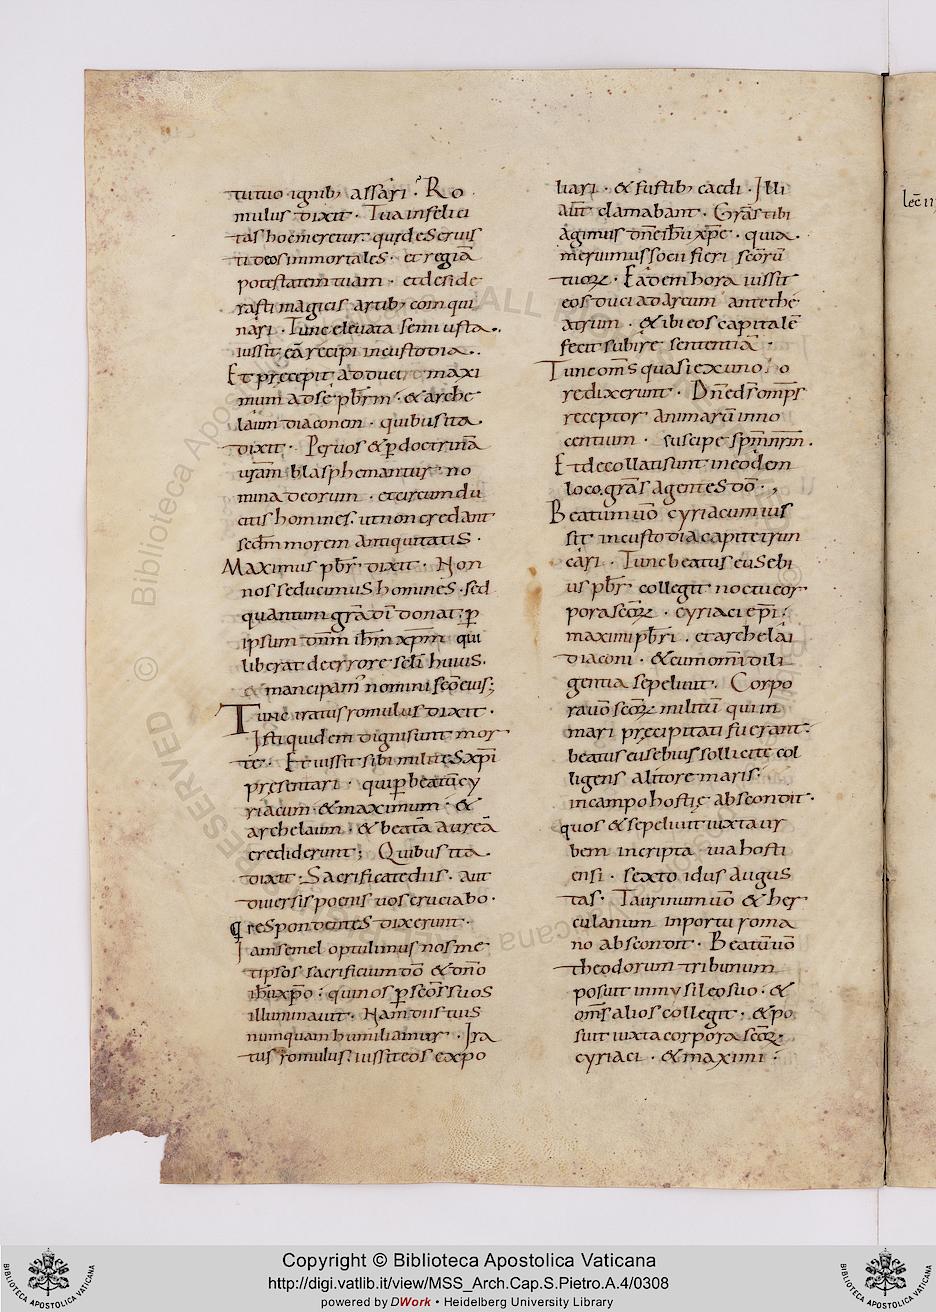 tutuo ignib; assari · Ro
mulus dixit · Tua infelici
tas hoc meretur · qui deseruis
ti deos immortales · et regiā
potestatem tuam · et deside
rasti magicis artib; comqui
nari · Tunc elevata semiusta ·
iussit eā recipi in custodia ·
Et precepit adduci maxi
mum ad se pb̄rm̄ · & arche
laum diaconem · quibus ita
dixit · Per uos & ꝑ doctrinā
ur̄am blasphemantur no
mina deorum · et circumdu
citis homines · ut non credant
sec̄dm morem antiquitatis ·
Maximus pb̄r dixit · Non
nos seducimus homines · sed
quantum gr̄a dī donat · ꝑ
ipsum dn̄m ih̄m xp̄m qui
liberat de errore sc̄li huius ·
& mancipam' nomini sc̄o eius;
Tunc iratus romulus dixit ·
Isti quidem digni sunt mor
te · Et iussit sibi milites xp̄i
presentari · qui ꝑ beatū cy
riacum · & maximum · &
archelaum · & beatā aureā
crediderunt; Quibus ita
dixit · Sacrificate diis · aut
diuersis poenis uos cruciabo ·
Qui respondentes dixerunt ·
Iam semel optulimus nosme
tipsos sacrificium dō & dn̄o
ih̄u xp̄o · qui nos ꝑ sc̄os suos
illuminauit · Nam diis tuis
numquam humiliamur · Ira
tus romulus · iussit eos expo
liari · & fustib; caedi · Illi
aūt clamabant · Gr̄as tibi
agimus dn̄e ih̄u xp̄e · quia
meruimus socii fieri sc̄orū
tuoꝝ · Eadem hora iussit
eos duci ad arcum ante the
atrum · & ibi eos capitalē
fecit subire sententiā ·
Tunc om̄s quasi ex uno o
re dixerunt · Dn̄e ds̄ omp̄s
receptor animarū inno
centium · suscipe sp̄m nr̄m ·
Et decollati sunt in eodem
loco, gr̄as agentes dō · ,
Beatum uō cyriacum ius
sit in custodia capite trun
cari · Tunc beatus eusebi
us pb̄r collegit noctu cor
pora sc̄oꝝ · cyriaci ep̄i ·
maximi pb̄ri · et archelai
diaconi · & cum omī dili
gentia sepeliuit · Corpo
ra uō sc̄oꝝ militū qui in
mari precipitati fuerant ·
beatus eusebius sollicite col
ligens a litore maris ·
in campo hostię abscondit ·
quos & sepeliuit iuxta ur
bem in cripta uia hosti
ensi · sexto idus augus
tas · Taurinum uō & her
culanum in portu roma
no abscondit · Beatū uō
theodorum tribunum
posuit in mysileo suo · &
om̄s alios collegit · & po
suit iuxta corpora sc̄oꝝ
cyriaci · & maximi ·
lec̄ ii
Copyright © Biblioteca Apostolica Vaticana
http://digi.vatlib.it/view/MSS_Arch.Cap.S.Pietro.A.4/0308
powered by DWork • Heidelberg University Library